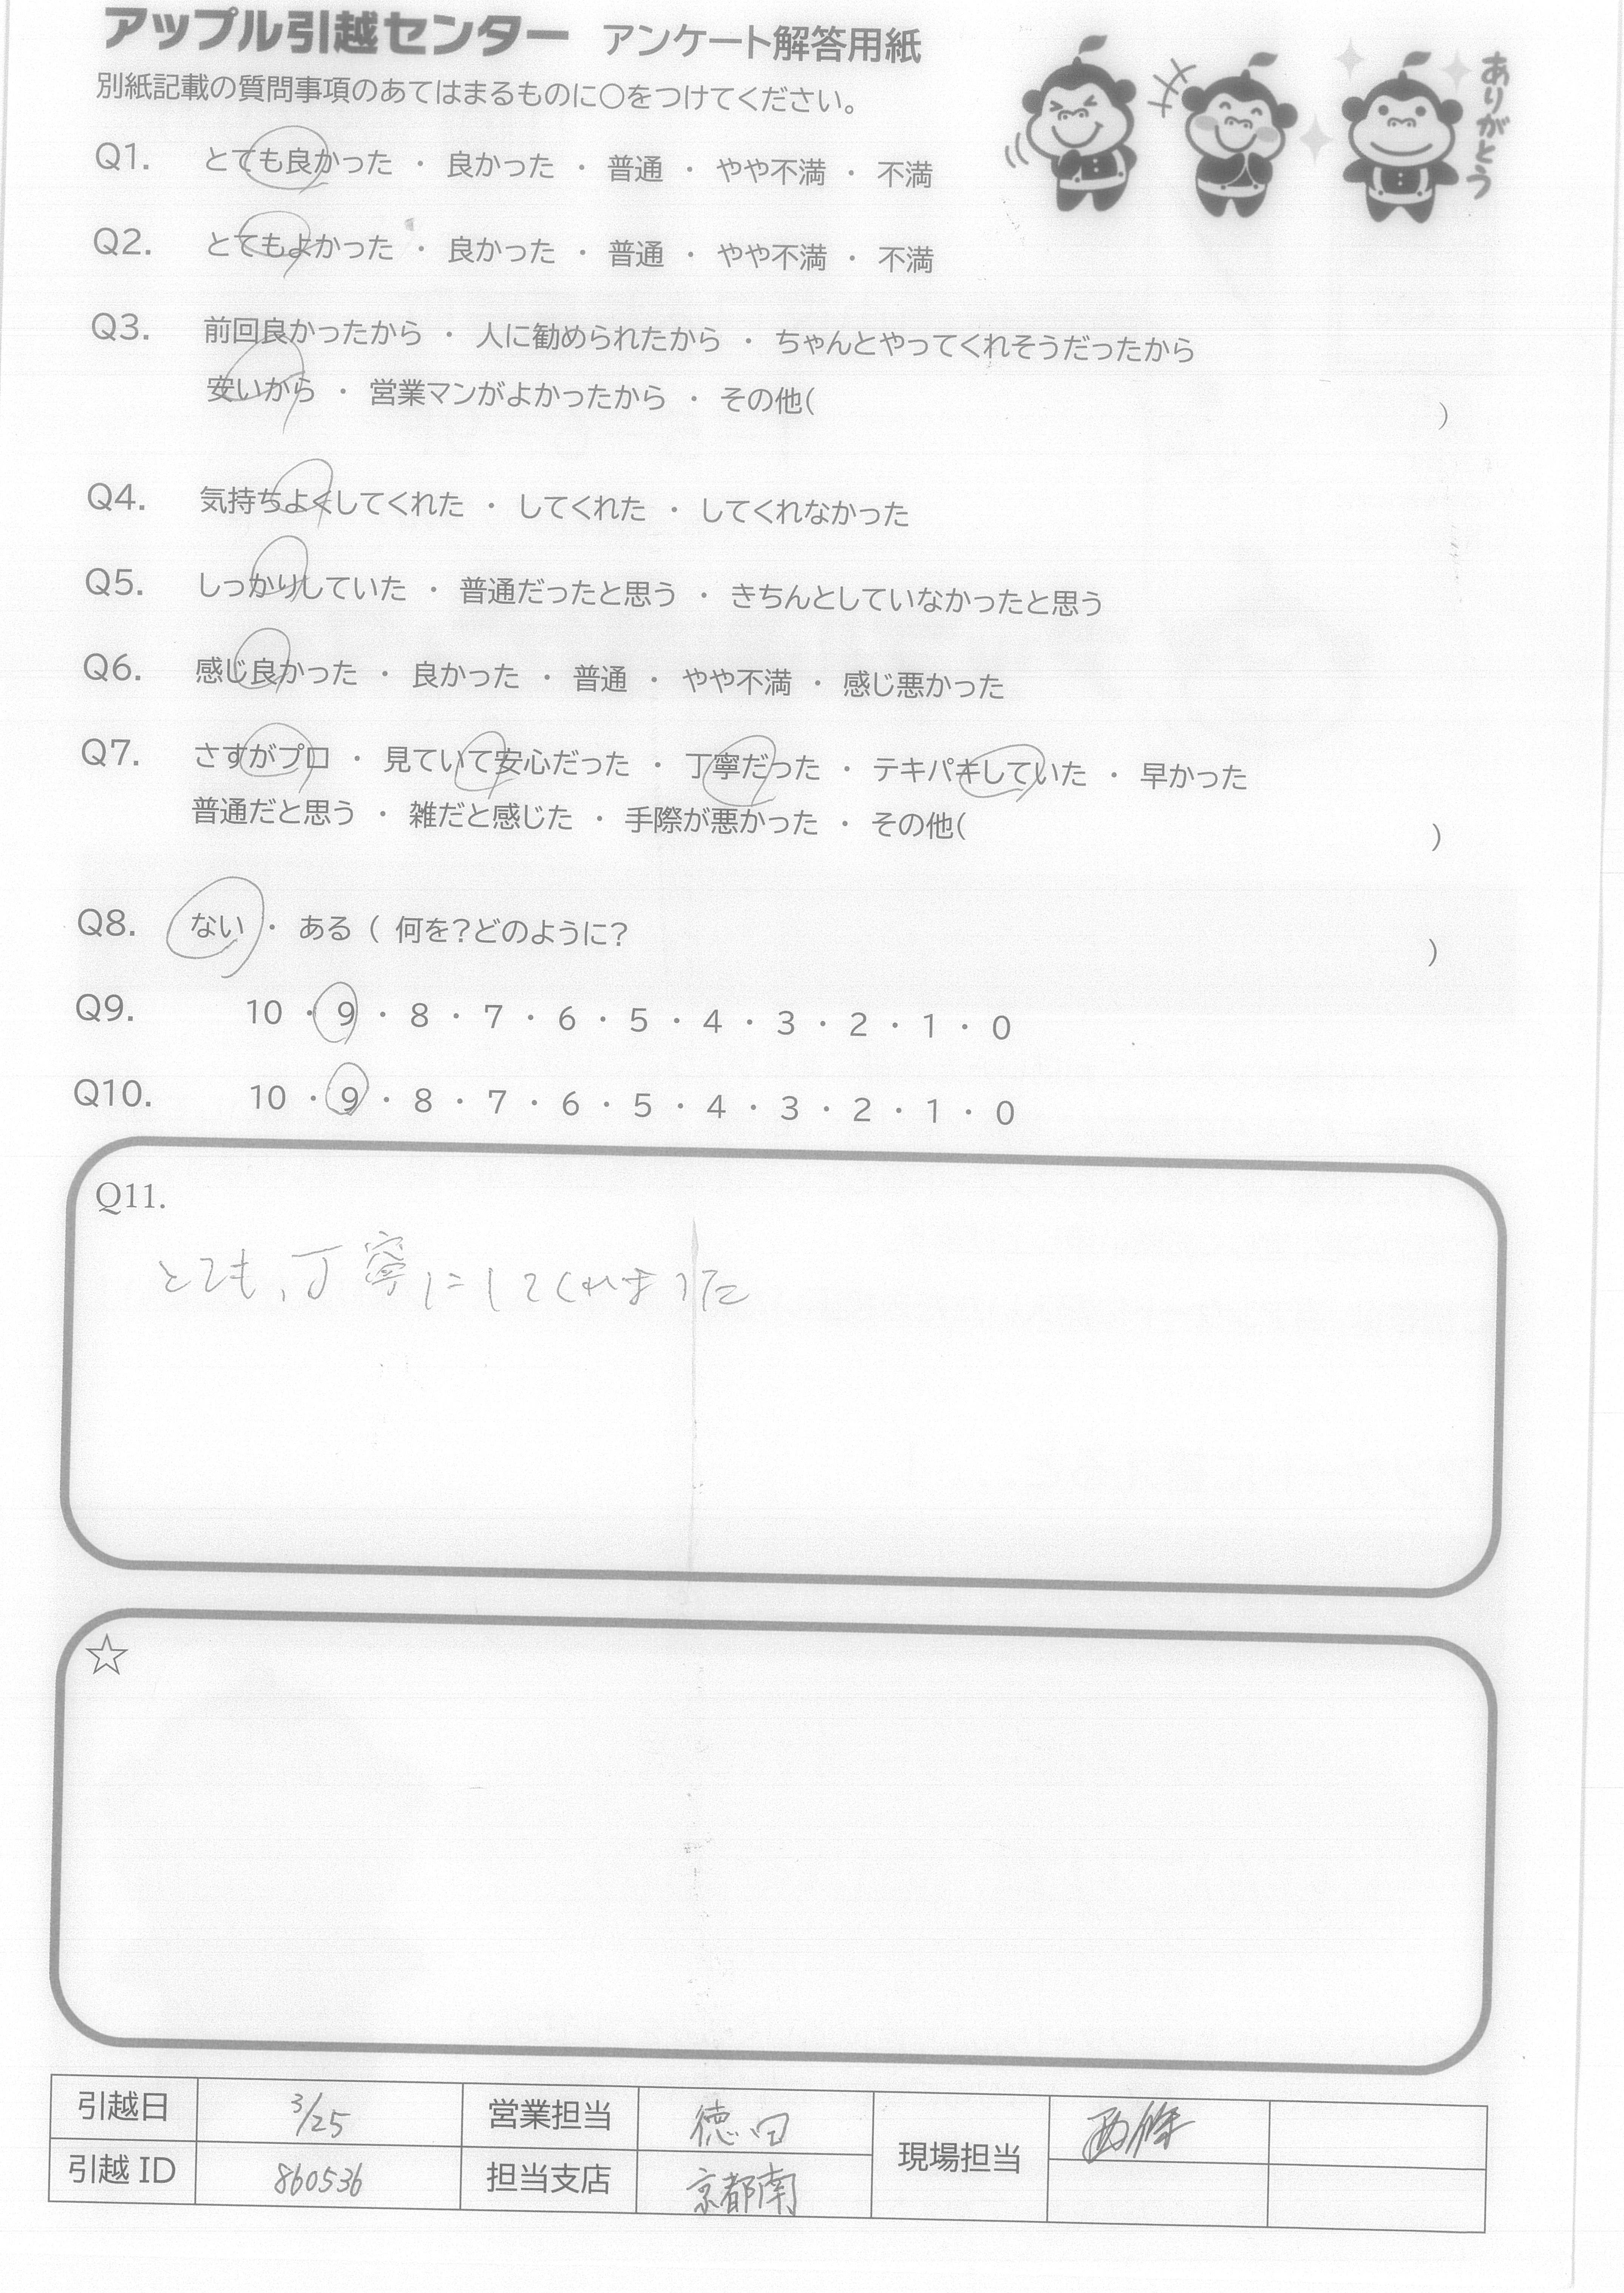 アップル引越センター アンケート解答用紙
別紙記載の質問事項のあてはまるものに○をつけてください。
ありがとう
Q1. とても良かった ・ 良かった ・ 普通 ・ やや不満 ・ 不満
Q2. とてもよかった ・ 良かった ・ 普通 ・ やや不満 ・ 不満
Q3. 前回良かったから ・ 人に勧められたから ・ ちゃんとやってくれそうだったから
安いから ・ 営業マンがよかったから ・ その他( )
Q4. 気持ちよくしてくれた ・ してくれた ・ してくれなかった
Q5. しっかりしていた ・ 普通だったと思う ・ きちんとしていなかったと思う
Q6. 感じ良かった ・ 良かった ・ 普通 ・ やや不満 ・ 感じ悪かった
Q7. さすがプロ ・ 見ていて安心だった ・ 丁寧だった ・ テキパキしていた ・ 早かった
普通だと思う ・ 雑だと感じた ・ 手際が悪かった ・ その他( )
Q8. ない ・ ある ( 何を?どのように? )
Q9. 10 ・ 9 ・ 8 ・ 7 ・ 6 ・ 5 ・ 4 ・ 3 ・ 2 ・ 1 ・ 0
Q10. 10 ・ 9 ・ 8 ・ 7 ・ 6 ・ 5 ・ 4 ・ 3 ・ 2 ・ 1 ・ 0
Q11.
とても、丁寧にしてくれました
☆
引越日 3/25 営業担当 徳田 現場担当 西條
引越ID 860536 担当支店 京都南